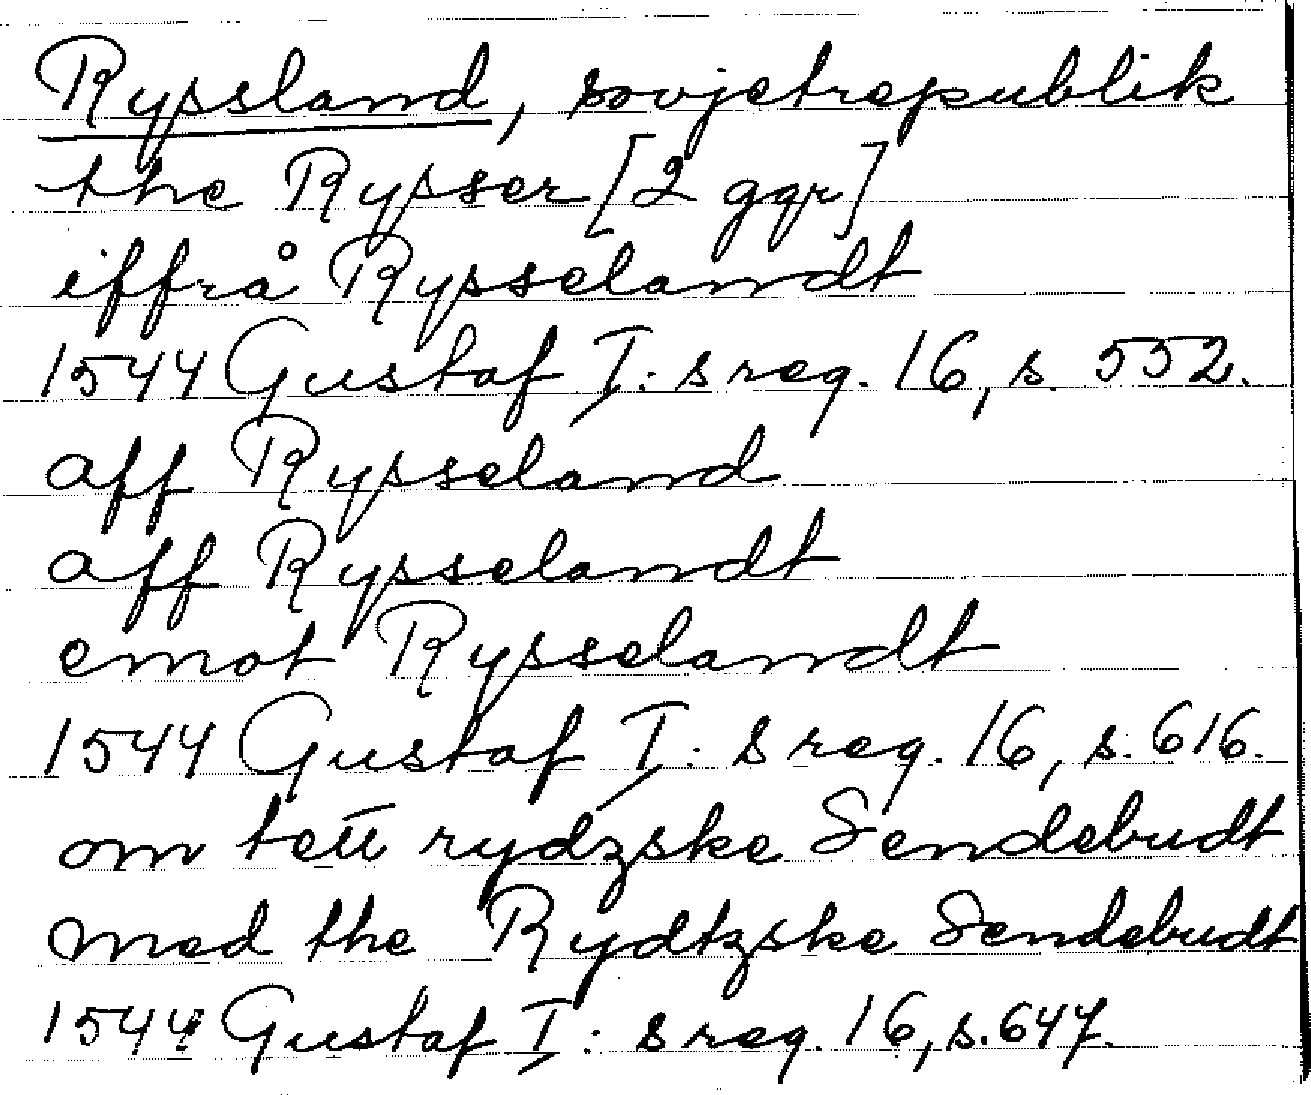 Ryssland, sovjetrepublik
the Rysser [2 ggr]
iffrå Rysselandt
1544 Gustaf I: s reg. 16, s. 552.
aff Rysseland
aff Rysselandt
emot Rysselandt
1544 Gustaf I: s reg. 16, s. 616.
om rydzske Sendebudt
med the Rydtzske Sendebudt
1544 Gustaf I: s reg. 16, s. 647.